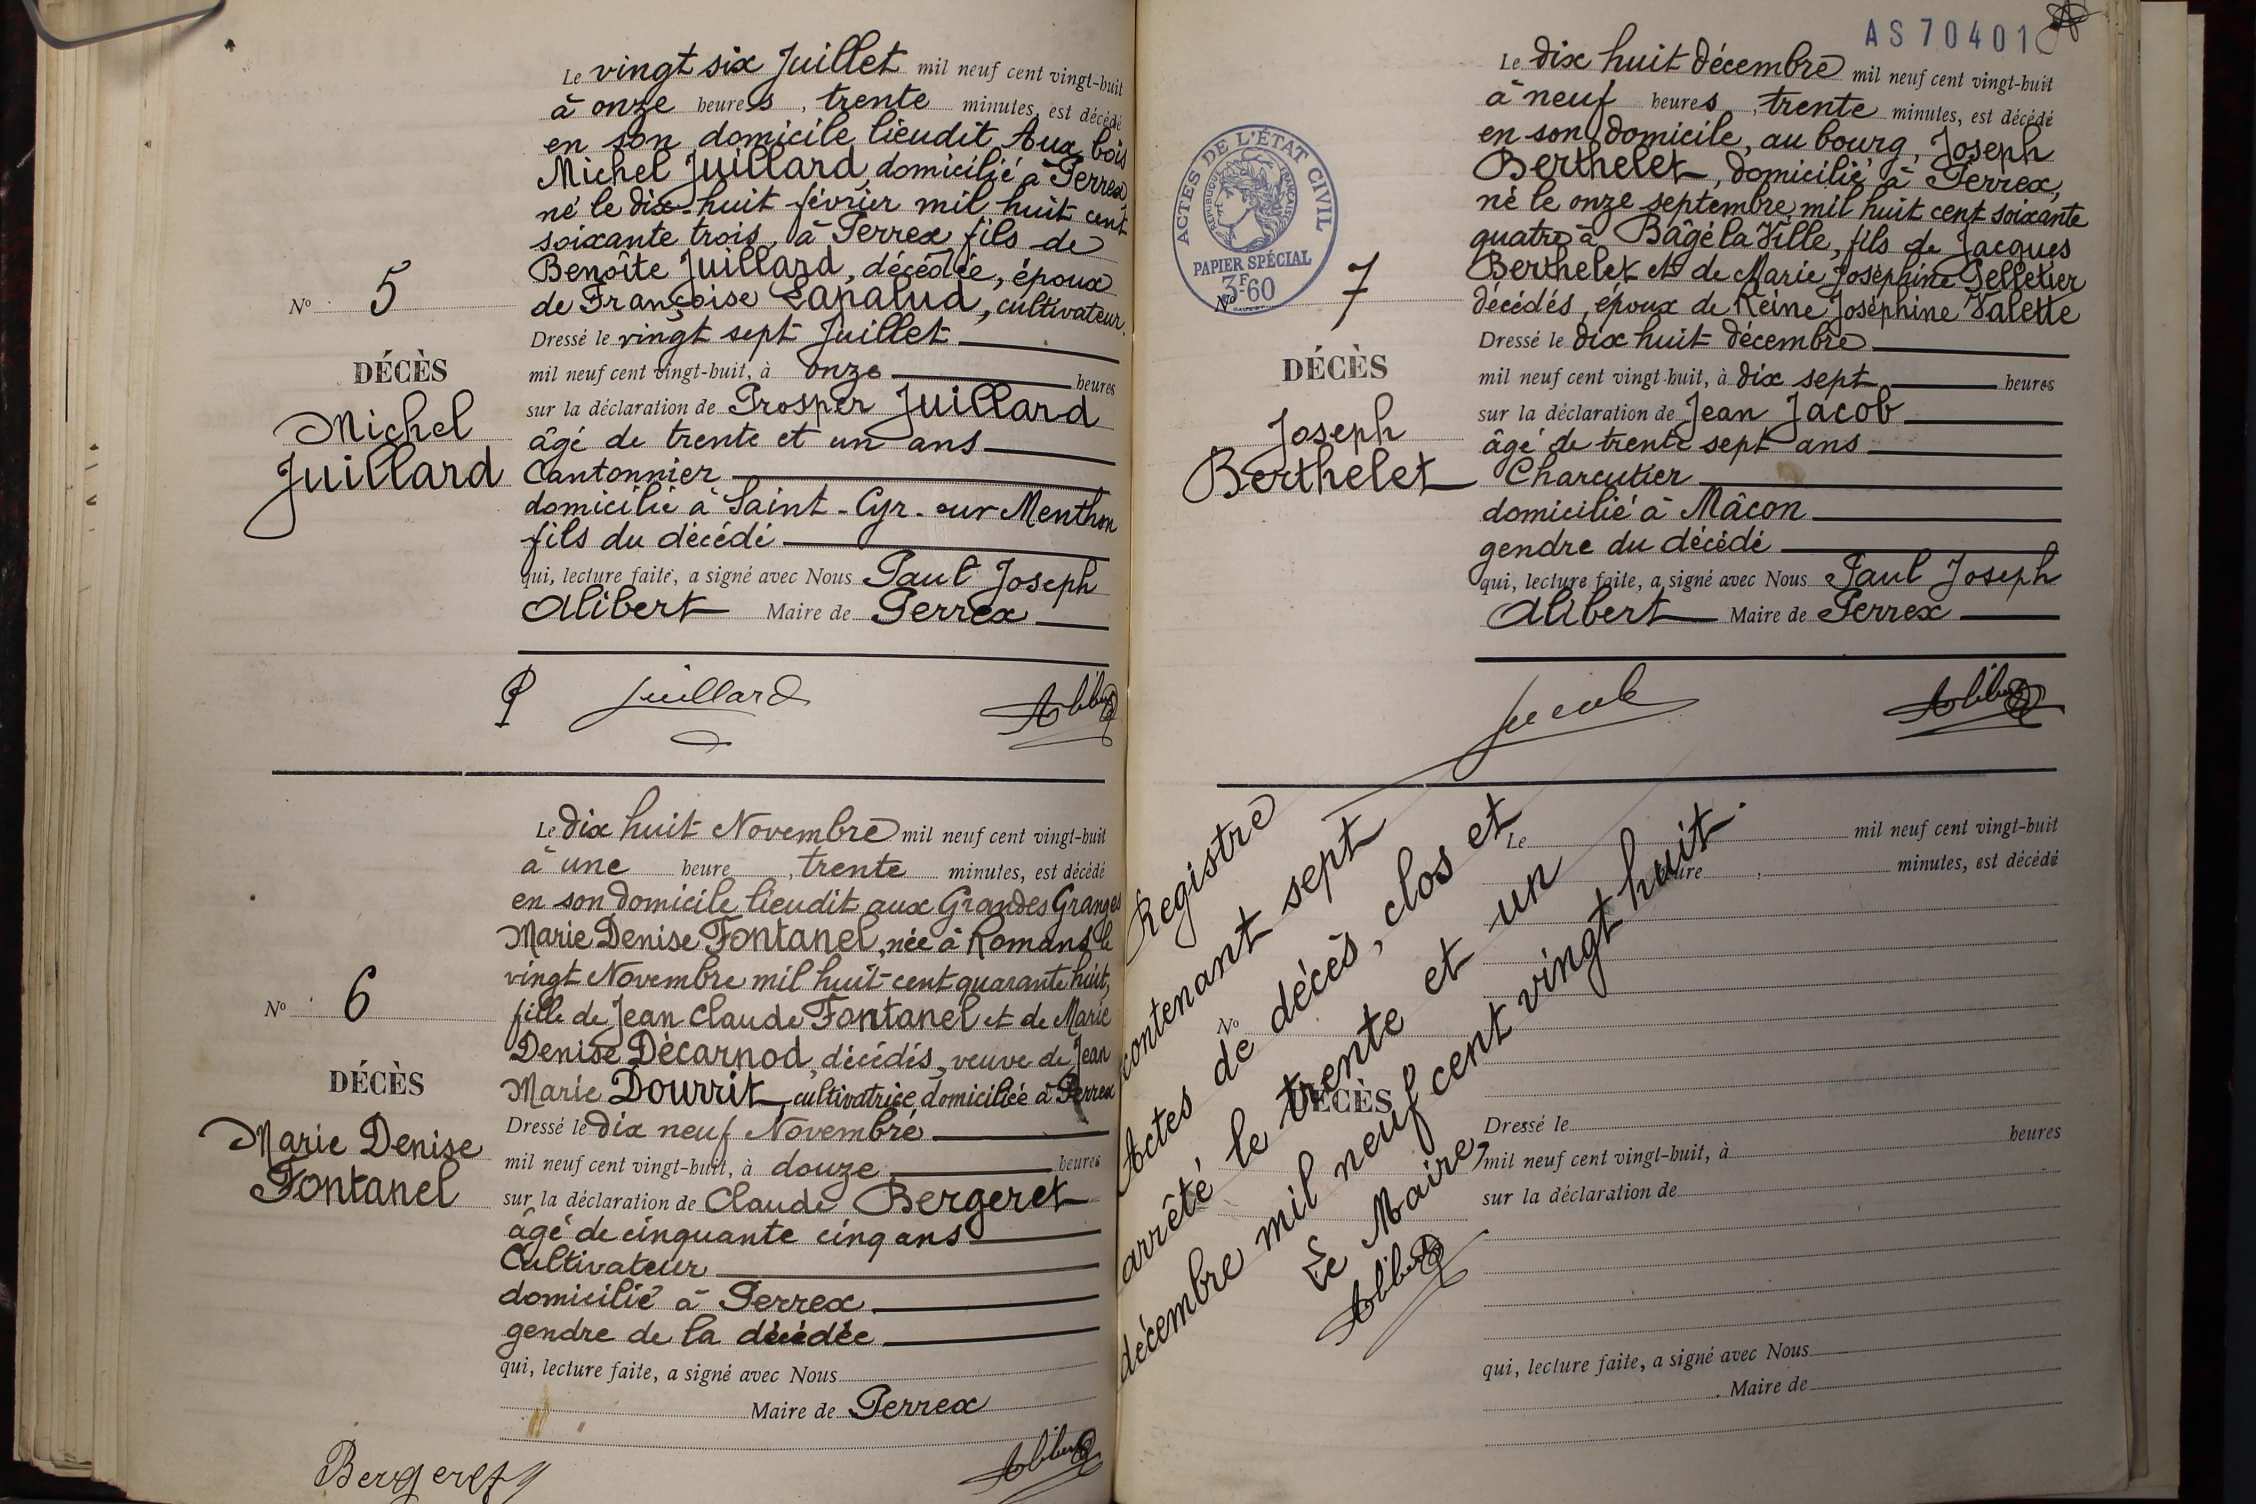 Le vingt six Juillet mil neuf cent vingt-huit
à onze heures, trente minutes, est décédé
en son domicile lieudit Aux bois
Michel Juillard, domicilié à Perrex,
né le dix-huit février mil huit cent
soixante trois, à Perrex fils de
Benoîte Juillard, décédée, époux
de Françoise Lapalud, cultivateur.
N° 5
Dressé le vingt sept Juillet
DÉCÈS
mil neuf cent vingt-huit, à onze heures
Michel
Juillard
sur la déclaration de Prosper Juillard
âgé de trente et un ans
Cantonnier
domicilié à Saint-Cyr-sur Menthon
fils du décédé
qui, lecture faite, a signé avec Nous Paul Joseph
Alibert Maire de Perrex
Juillard Alibert
Le dix huit Novembre mil neuf cent vingt-huit
à une heure, trente minutes, est décédé
en son domicile lieudit aux Grandes Granges
Marie Denise Fontanel, née à Romans le
vingt Novembre mil huit cent quarante huit,
fille de Jean Claude Fontanel et de Marie
Denise Décarnod, décédés, veuve de Jean
Marie Dourrit, cultivatrice, domiciliée à Perrex
N° 6
DÉCÈS
Marie Denise
Fontanel
Dressé le dix neuf Novembre
mil neuf cent vingt-huit, à douze heures
sur la déclaration de Claude Bergeret
âgé de cinquante cinq ans
Cultivateur
domicilié à Perrex
gendre de la décédée
qui, lecture faite, a signé avec Nous
Maire de Perrex
Bergeret Alibert
AS 70401
Le dix huit décembre mil neuf cent vingt-huit
à neuf heures, trente minutes, est décédé
en son domicile, au bourg, Joseph
Berthelet, domicilié à Perrex,
né le onze septembre mil huit cent soixante
quatre à Bâgé la Ville, fils de Jacques
Berthelet et de Marie Joséphine Pelletier
décédés, époux de Reine Joséphine Valette
ACTES DE L'ÉTAT CIVIL
RÉPUBLIQUE FRANÇAISE
PAPIER SPÉCIAL
3F60
N° 7
DÉCÈS
Joseph
Berthelet
Dressé le dix huit décembre
mil neuf cent vingt-huit, à dix sept heures
sur la déclaration de Jean Jacob
âgé de trente sept ans
Charcutier
domicilié à Mâcon
gendre du décédé
qui, lecture faite, a signé avec Nous Paul Joseph
Alibert Maire de Perrex
Jacob Alibert
Registre
contenant sept
Actes de décès, clos et
arrêté le trente et un
décembre mil neuf cent vingt huit.
Le Maire,
Alibert
Le mil neuf cent vingt-huit
heure, minutes, est décédé
N°
DÉCÈS
Dressé le
mil neuf cent vingt-huit, à heures
sur la déclaration de
qui, lecture faite, a signé avec Nous
Maire de